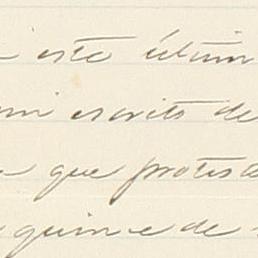 este últim
mi escrito de
que protes
quince de